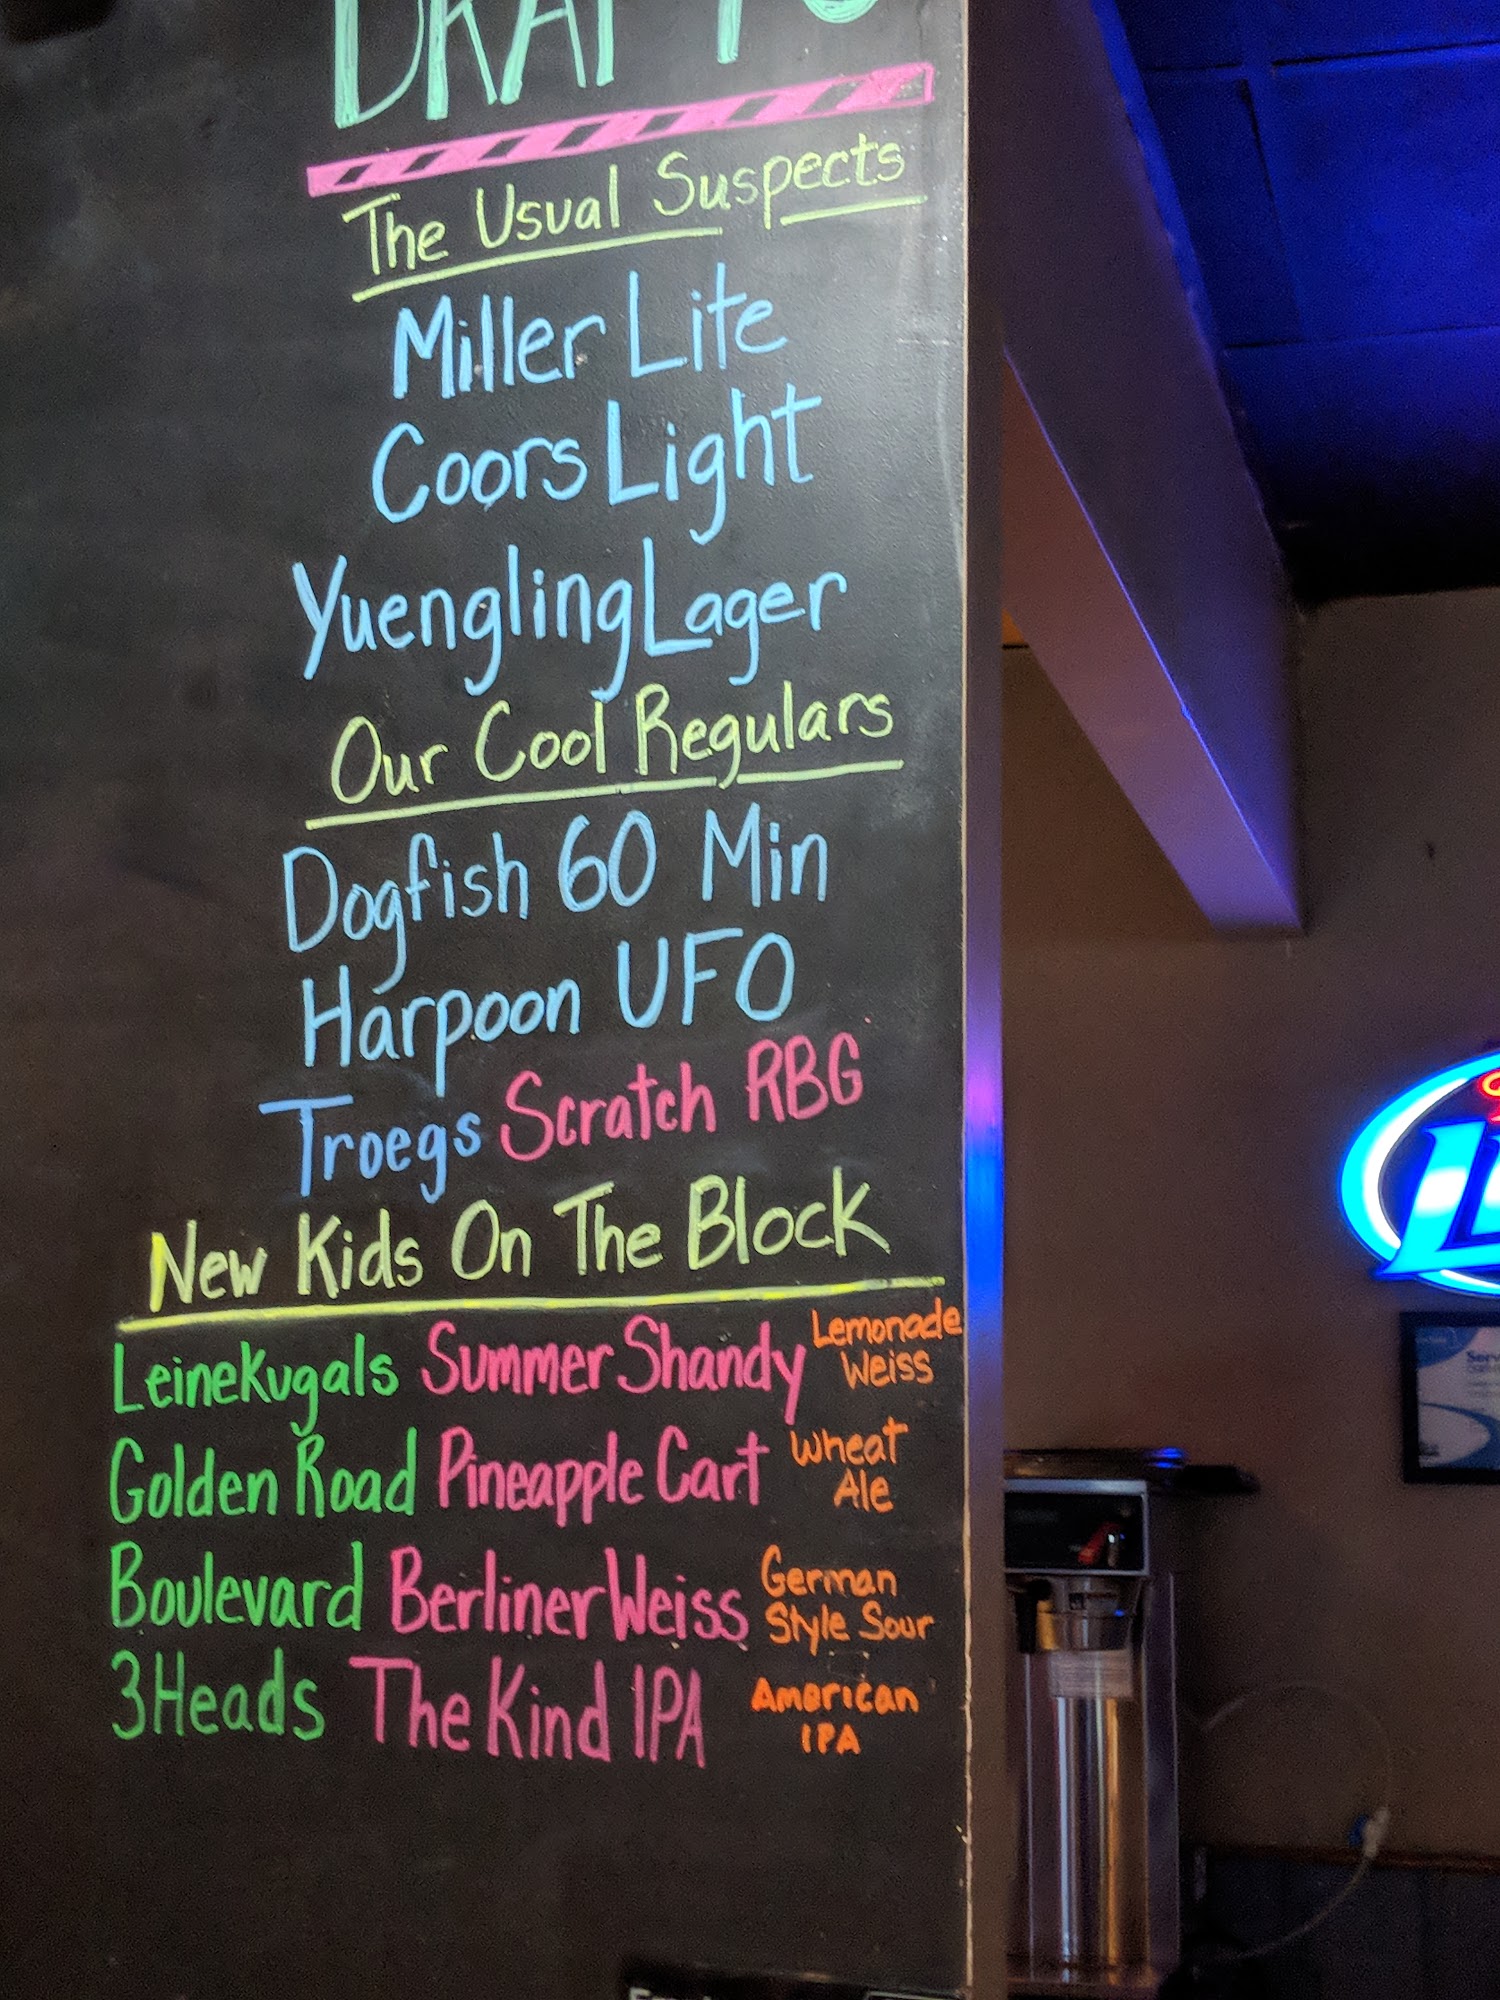 DRAFTS
The Usual Suspects
Miller Lite
Coors Light
Yuengling Lager
Our Cool Regulars
Dogfish 60 Min
Harpoon UFO
Troegs Scratch RBG
New Kids On The Block
Leinekugals Summer Shandy Lemonade
Weiss
Golden Road Pineapple Cart Wheat
Ale
Boulevard Berliner Weiss German
Style Sour
3Heads The Kind IPA American
IPA